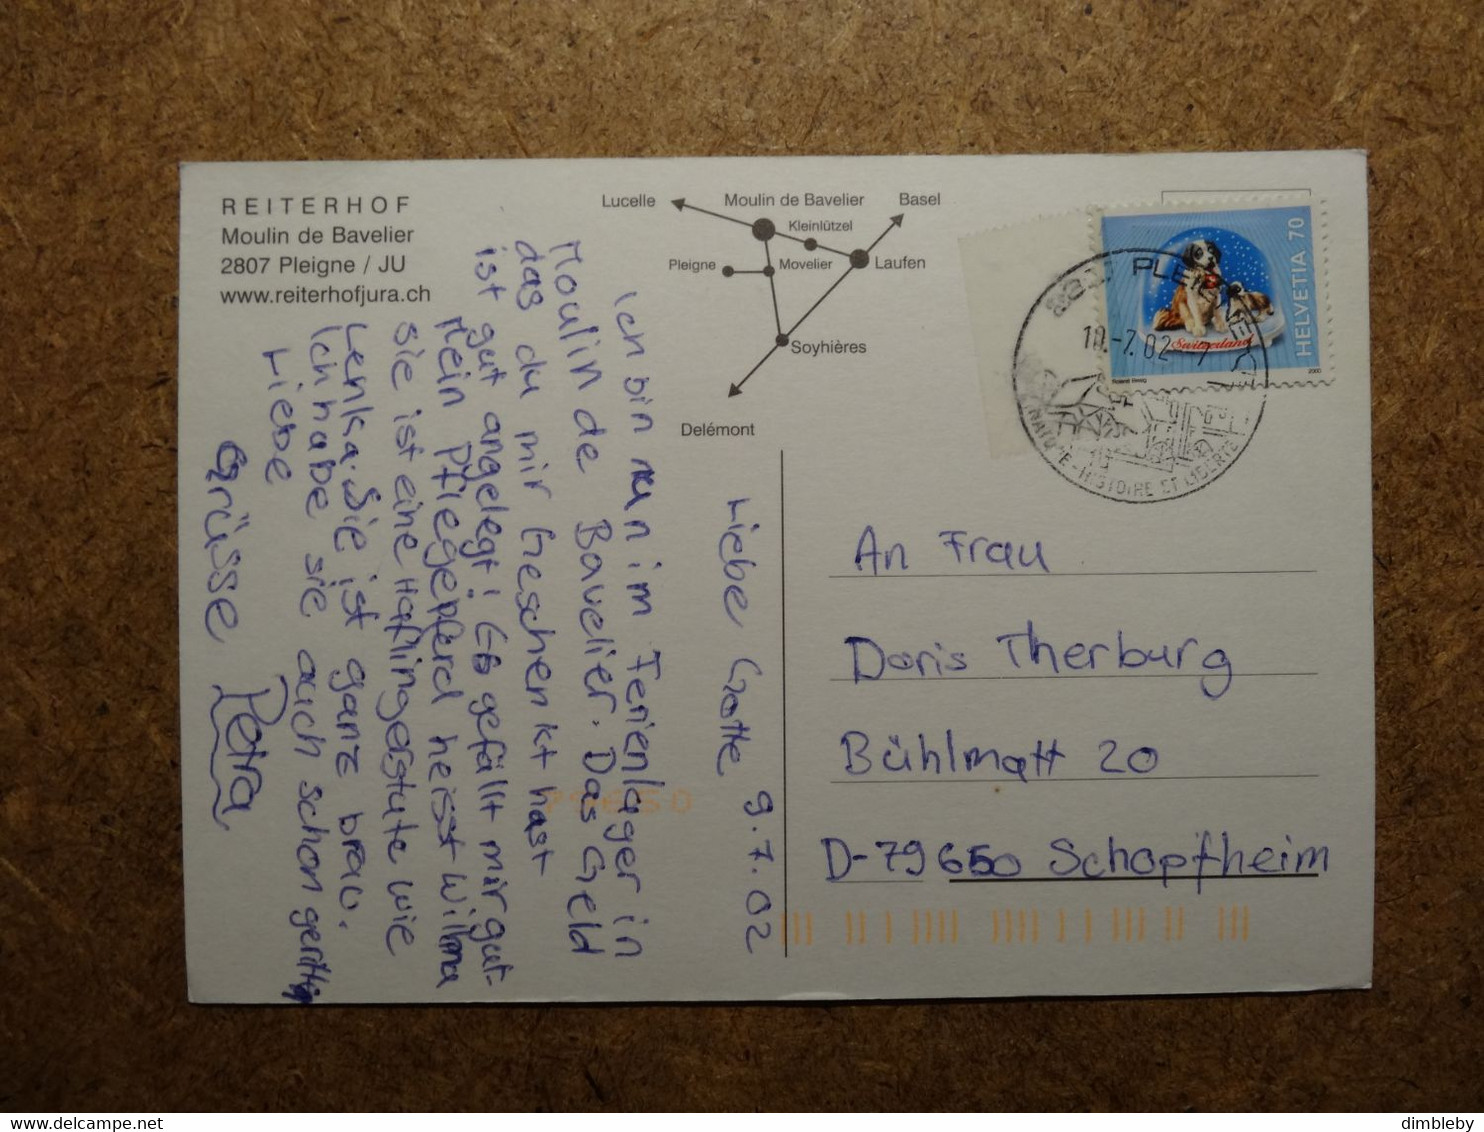 REITERHOF
Moulin de Bavelier
2807 Pleigne / JU
www.reiterhofjura.ch
Lucelle
Moulin de Bavelier
Basel
Kleinlützel
Pleigne
Movelier
Laufen
Soyhières
Delémont
HELVETIA 70
Switzerland
2000
10.-7.02
NATURE-HISTOIRE ET LIBERTE
Liebe Gotte 9.7.02
Ich bin nun im Ferienlager in
Moulin de Bavelier. Das Geld
das du mir Geschenkt hast
ist gut angelegt! Es gefällt mir gut.
Mein Pflegepferd heisst Wilma
Sie ist eine Haflingerstute wie
Lenka. Sie ist ganz brav.
Ich habe sie auch schon geritten
Liebe
Grüsse Petra
An Frau
Doris Therburg
Bühlmatt 20
D-79650 Schopfheim
79650
delcampe.net
dimbleby